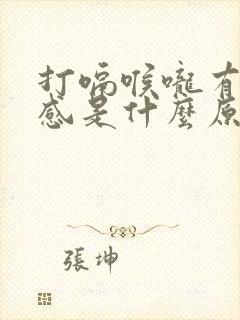 打嗝喉嚨有
感是什麼原
張坤